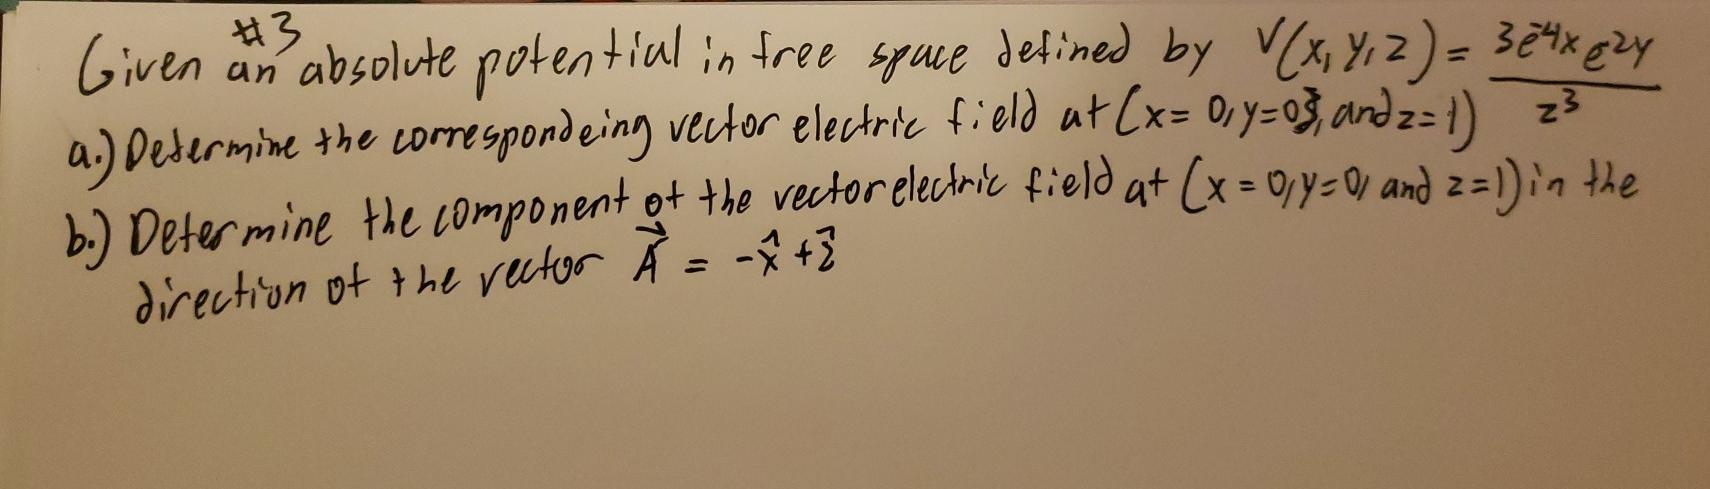 #3
Given an absolute potential in free space defined by V(x, y, z) = 3e^-4x e^-2y / z^3
a.) Determine the correspondeing vector electric field at (x = 0, y=0, and z = 1)
b.) Determine the component of the vector electric field at (x = 0, y = 0, and z = 1) in the
direction of the vector A⃗ = -x̂ + ẑ